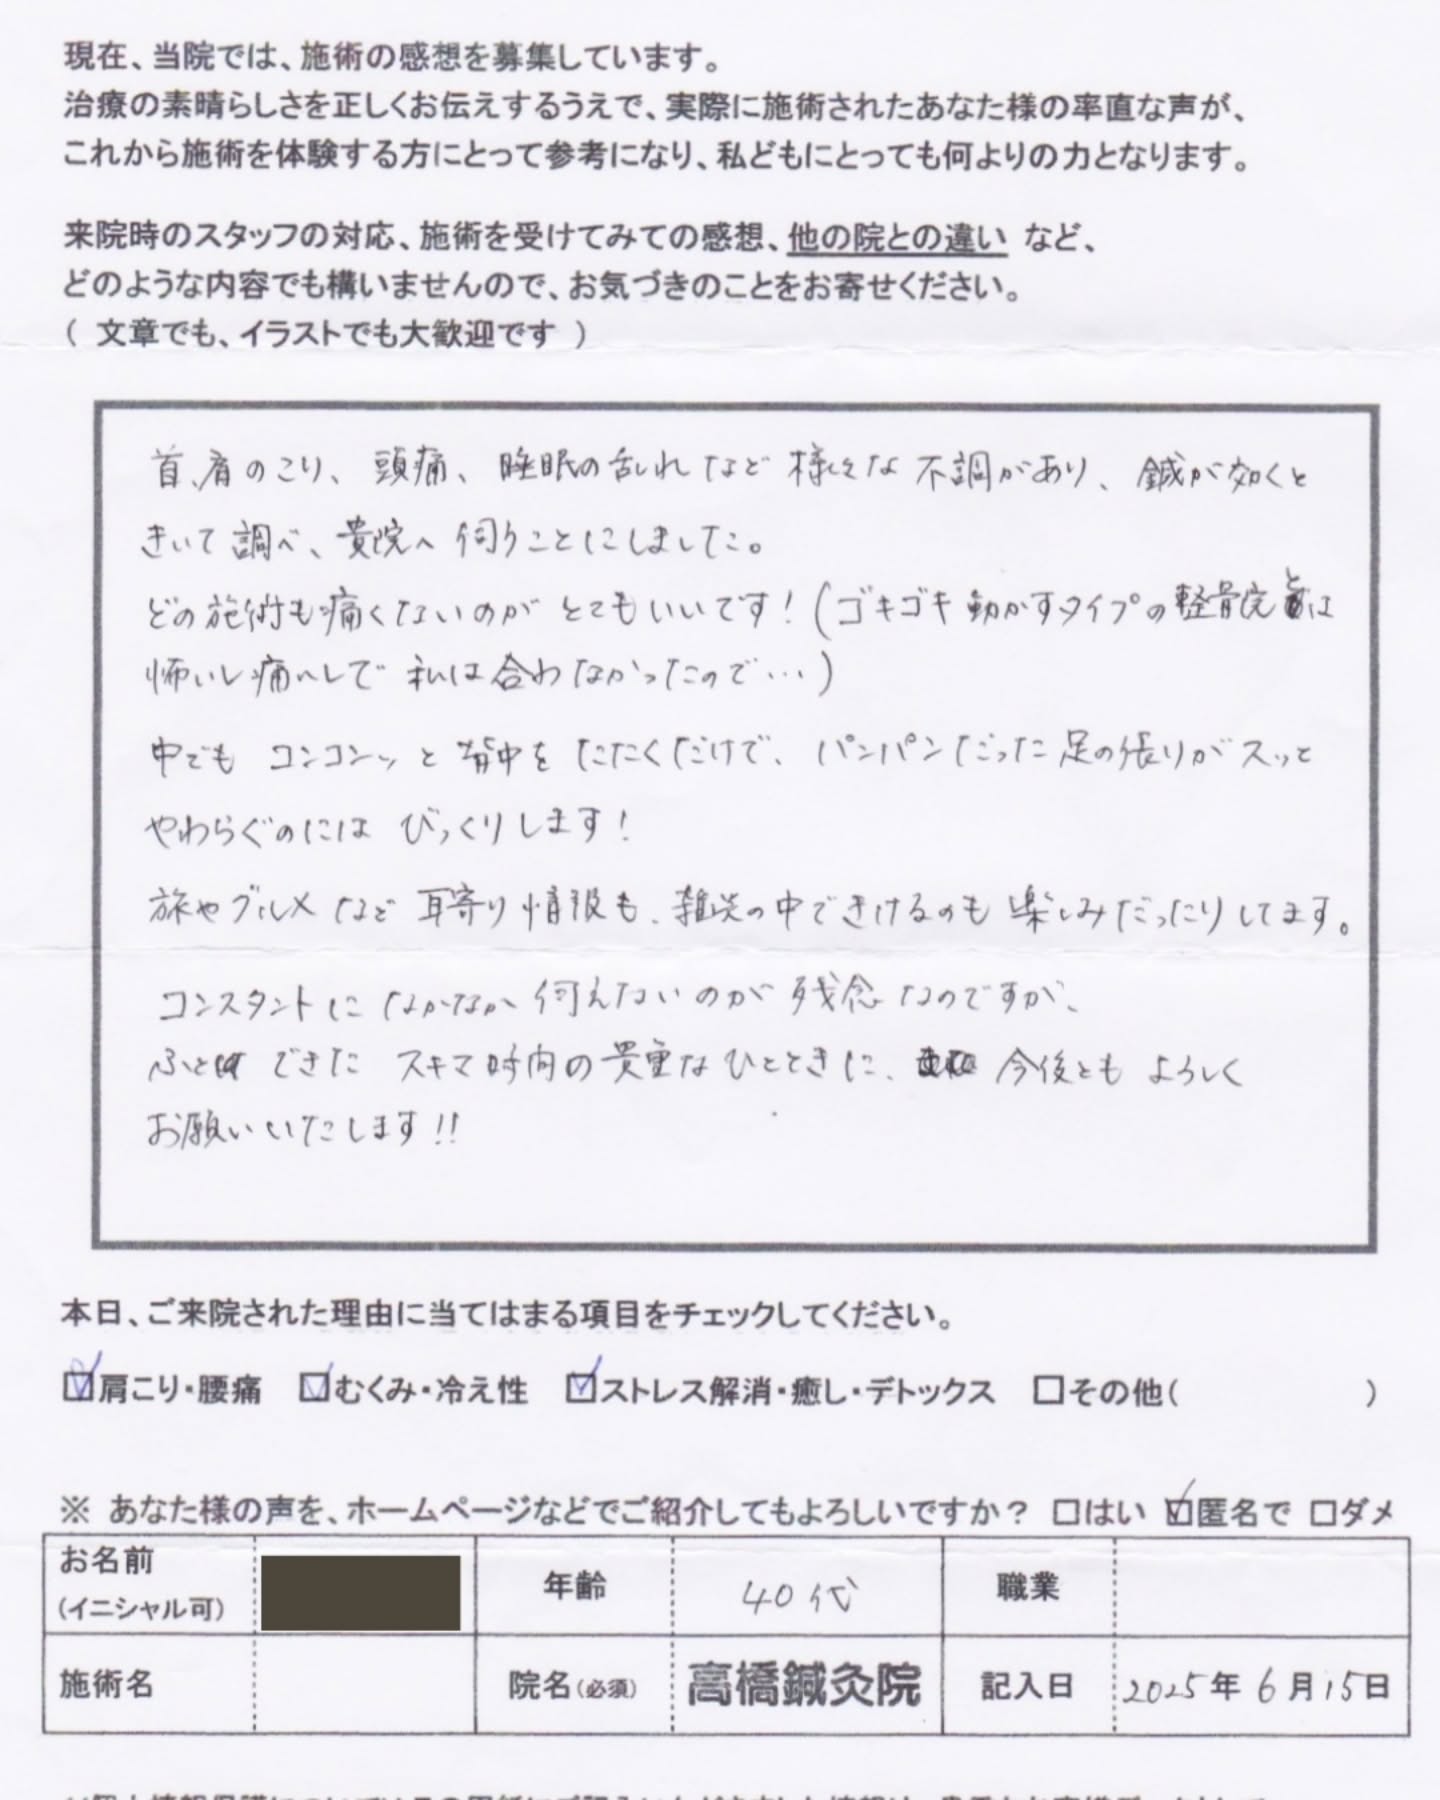 現在、当院では、施術の感想を募集しています。
治療の素晴らしさを正しくお伝えするうえで、実際に施術されたあなた様の率直な声が、
これから施術を体験する方にとって参考になり、私どもにとっても何よりの力となります。
来院時のスタッフの対応、施術を受けてみての感想、他の院との違い など、
どのような内容でも構いませんので、お気づきのことをお寄せください。
( 文章でも、イラストでも大歓迎です )
首、肩のこり、頭痛、睡眠の乱れなど様々な不調があり、鍼が効くと
きいて調べ、貴院へ伺うことにしました。
どの施術も痛くないのがとてもいいです!(ゴキゴキ動かすタイプの軽骨院とは
怖いし痛いしで私は合わなかったので…)
中でもコンコンッと背中をたたくだけで、パンパンだった足の張りがスッと
やわらぐのにはびっくりします!
旅やグルメなど耳寄り情報も、雑談の中できけるのも楽しみだったりしてます。
コンスタントになかなか伺えないのが残念なのですが、
ふと できたスキマ時間の貴重なひとときに、 今後ともよろしく
お願いいたします!!
本日、ご来院された理由に当てはまる項目をチェックしてください。
☑肩こり・腰痛 ☑むくみ・冷え性 ☑ストレス解消・癒し・デトックス □その他( )
※ あなた様の声を、ホームページなどでご紹介してもよろしいですか? □はい ☑匿名で □ダメ
お名前 年齢 40代 職業
(イニシャル可)
施術名 院名(必須) 高橋鍼灸院 記入日 2025年6月15日